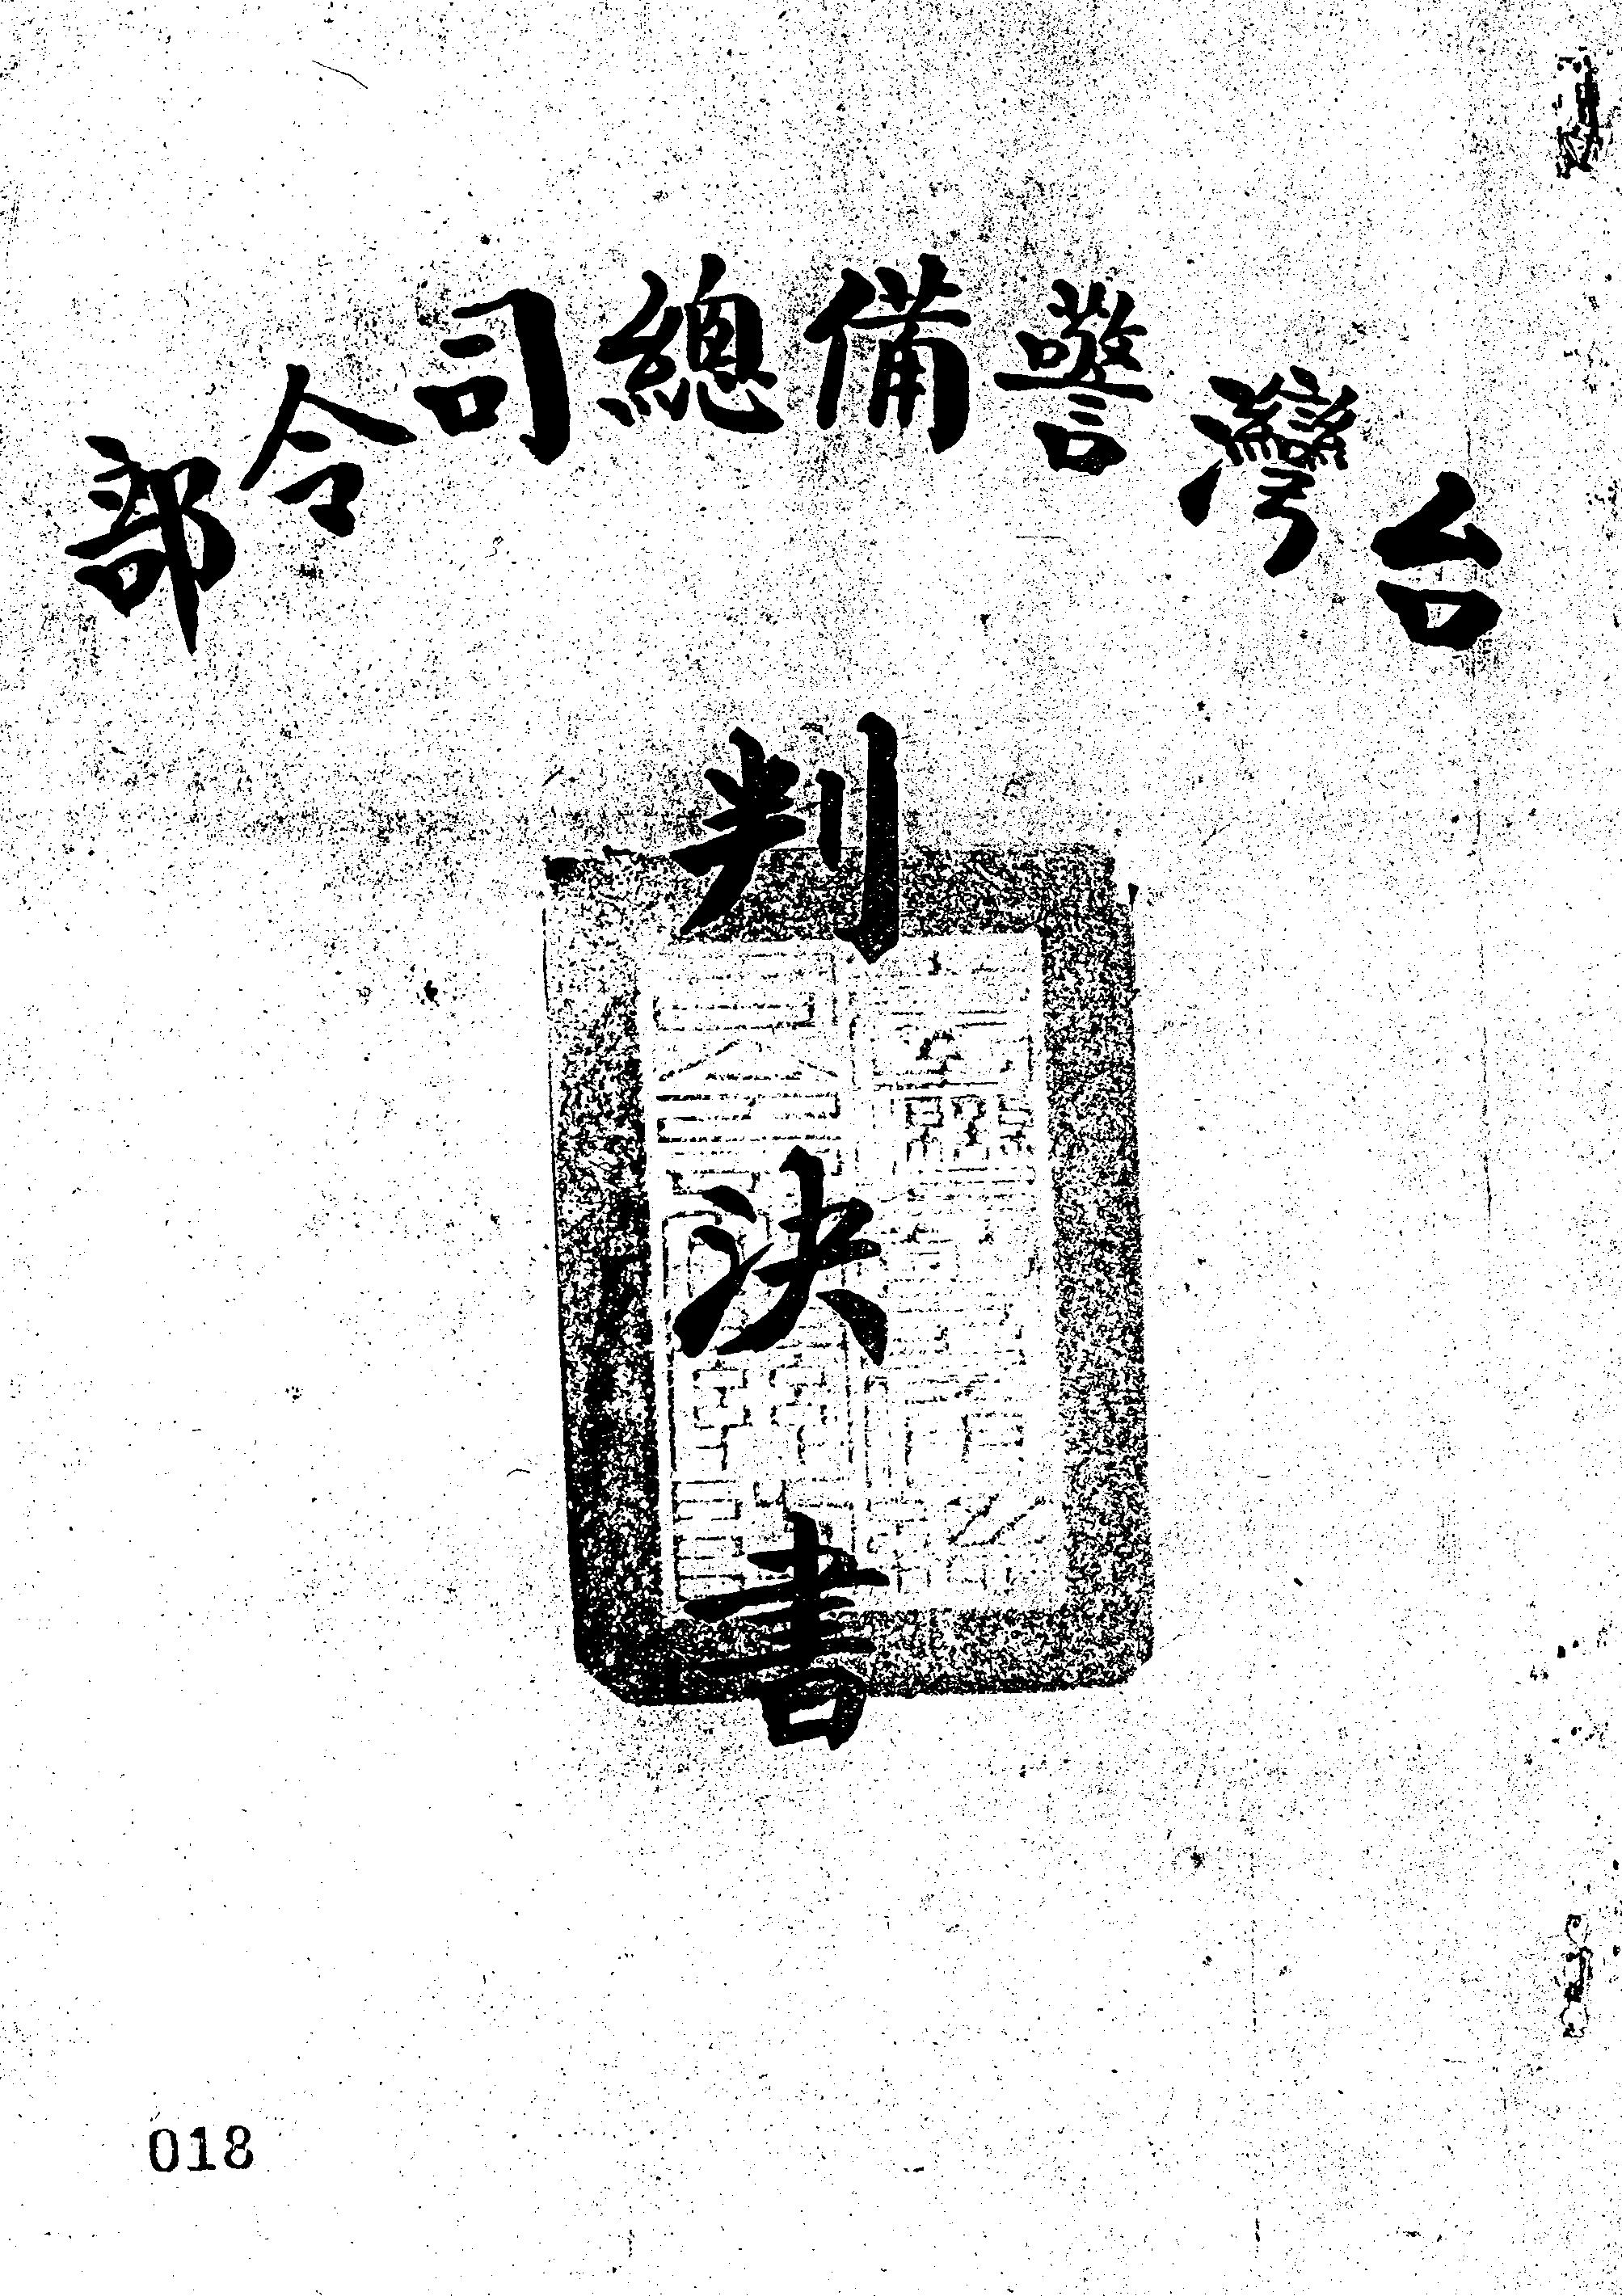 台灣警備總司令部
判決書
018